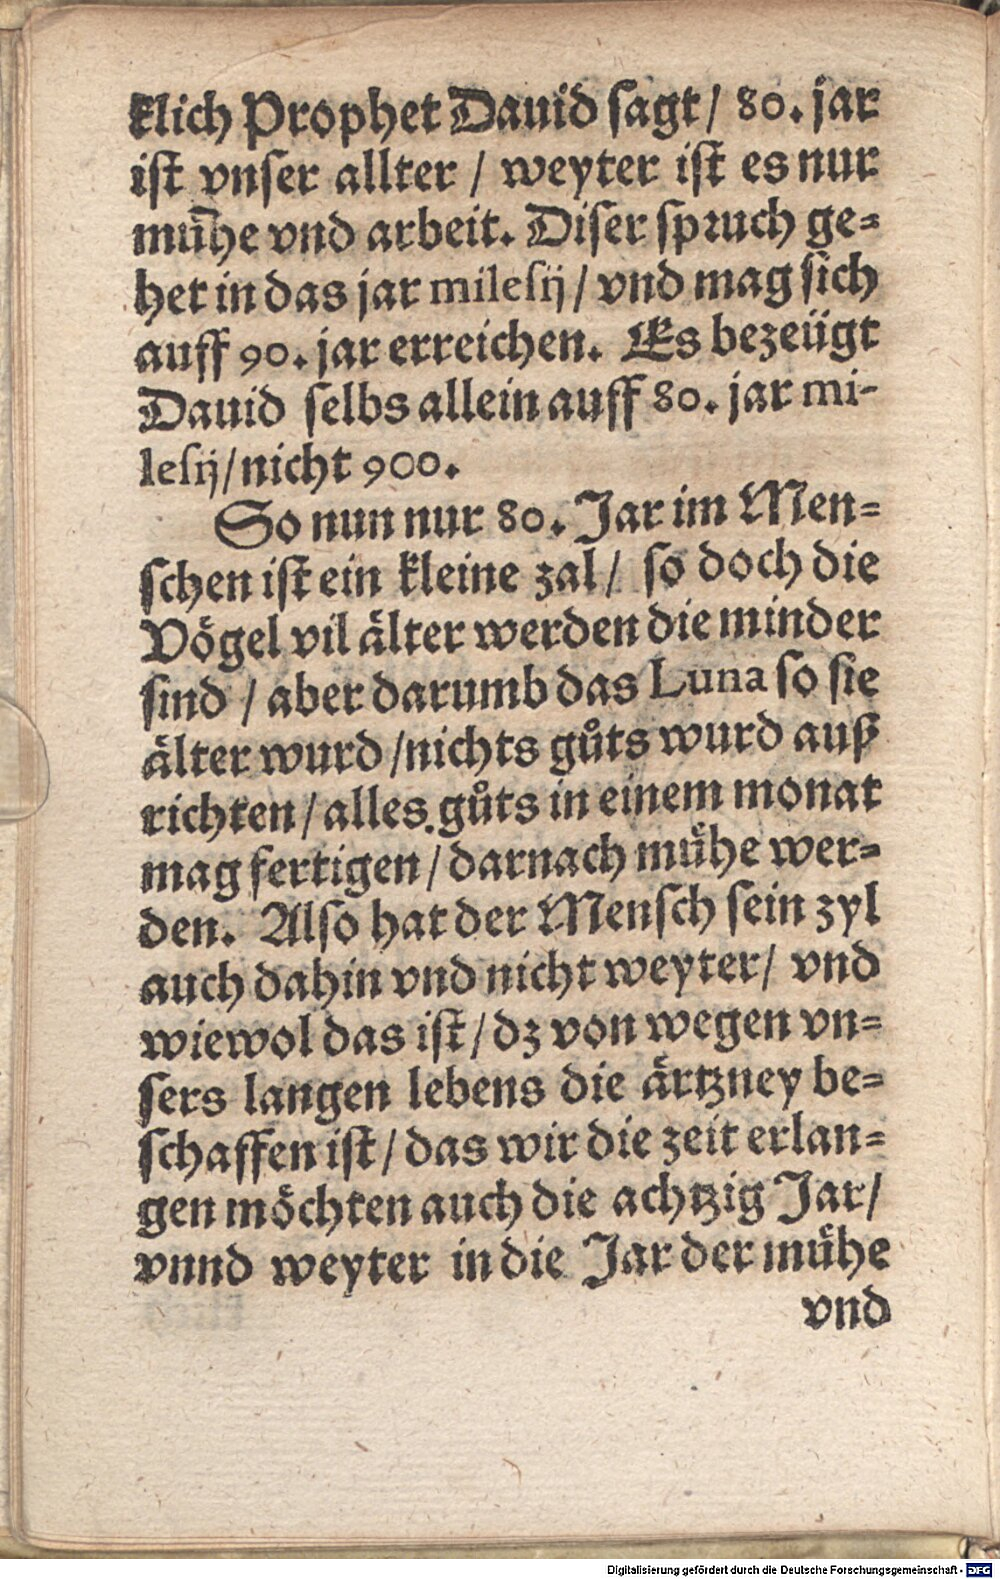 klich Prophet Dauid sagt / 80. jar
ist vnser allter / weyter ist es nur
mühe vnd arbeit. Diser spruch ge=
het in das jar milesij / vnd mag sich
auff 90. jar erreichen. Es bezeügt
Dauid selbs allein auff 80. jar mi-
lesij / nicht 900.
So nun nur 80. Jar im Men=
schen ist ein kleine zal / so doch die
Vögel vil älter werden die minder
sind / aber darumb das Luna so sie
älter wurd / nichts gůts wurd auß
richten / alles gůts in einem monat
mag fertigen / darnach mühe wer=
den. Also hat der Mensch sein zyl
auch dahin vnd nicht weyter / vnd
wiewol das ist / dz von wegen vn=
sers langen lebens die ärtzney be=
schaffen ist / das wir die zeit erlan=
gen möchten auch die achtzig Jar /
vnnd weyter in die Jar der mühe
vnd
Digitalisierung gefördert durch die Deutsche Forschungsgemeinschaft - DFG